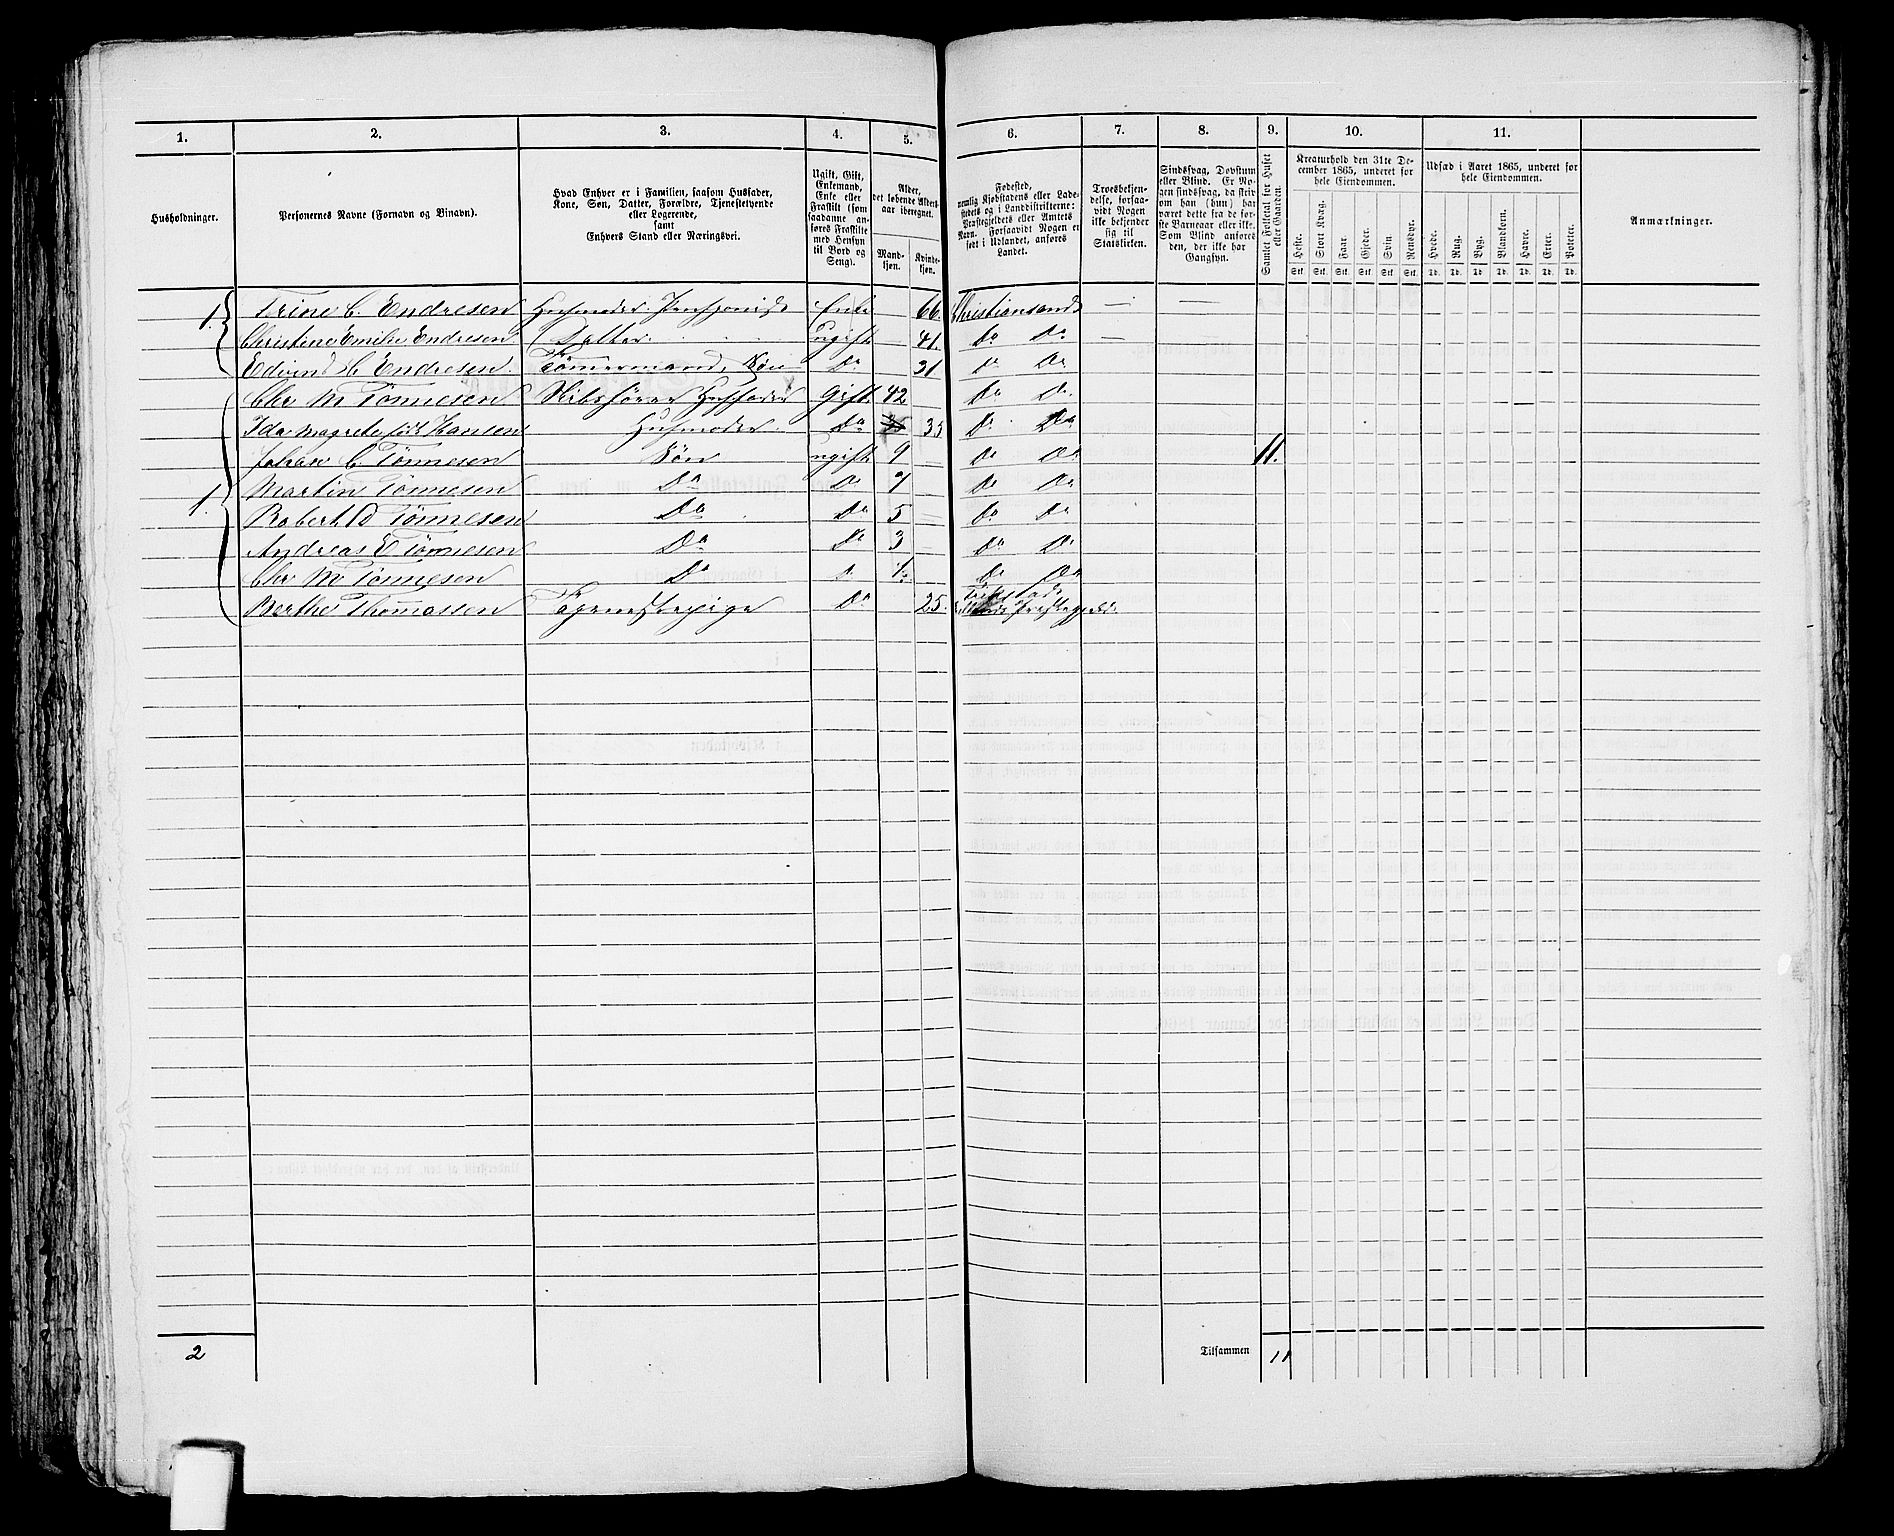 1. 2. 3. 4. 5. 6. 7. 8. 9. 10. 11.
Husholdninger.
Personernes Navne (Fornavn og Binavn).
Hvad Enhver er i Familien, saasom Husfader,
Kone, Søn, Datter, Forældre, Tjenestetyende
eller Logerende,
samt
Enhvers Stand eller Næringsvei.
Ugift, Gift,
Enkemand,
Enke eller
Fraskilt (som
saadanne an-
føres Fraskilte
med Hensyn
til Bord og
Seng).
Alder,
det løbende Alders-
aar iberegnet.
Mand-
kjøn.
Kvinde-
kjøn.
Fødested,
nemlig Kjøbstadens eller Lade-
stedets og i Landdistrikterne:
Præstegjeldets eller Amtets
Navn. Forsaavidt Nogen er
født i Udlandet, anføres
Landet.
Troesbekjen-
delse, forsaa-
vidt Nogen
ikke bekjender
sig til
Statskirken.
Sindssvag, Døvstum
eller Blind. Er No-
gen sindssvag, da skriv
om han (hun) har
været dette fra de før-
ste Barneaar eller ikke.
Som Blind anføres
den, der ikke har
Gangsyn.
Samlet Folketal for Huset
eller Gaarden.
Kreaturhold den 31te De-
cember 1865, underet for
hele Eiendommen.
Heste. Stort Kvæg. Faar. Gjeder. Svin. Rensdyr.
Stk. Stk. Stk. Stk. Stk. Stk.
Udsæd i Aaret 1865, underet for
hele Eiendommen.
Hvede. Rug. Byg. Blandkorn. Havre. Erter. Poteter.
Td. Td. Td. Td. Td. Td. Td.
Anmærkninger.
1. Trine C. Endresen Husmoder. Pensjonist Enke — 66. Christiansand — —
Christine Emilie Endresen Datter ugift — 41. Do Do —
Edvind C Endresen. Tømermand, Søn Do 21 Do Do
Chr M Tønnesen Skibsfører Husfader Gift 42 Do Do
Ida Magrete født Hansen Husmoder. Do 35 Do Do
Johan C. Tønnesen Søn ugift 9 Do Do 11.
1. Martin Tønnesen Do Do 7 Do Do
Robert D Tønnesen Do Do 5 Do Do
Andreas E Tønnesen Do Do 3 Do Do
Chr M Tønnesen Do Do Do Do
Berthe Thomassen Tjenestepige Do 25. Præstegjeld.
2 Tilsammen 11